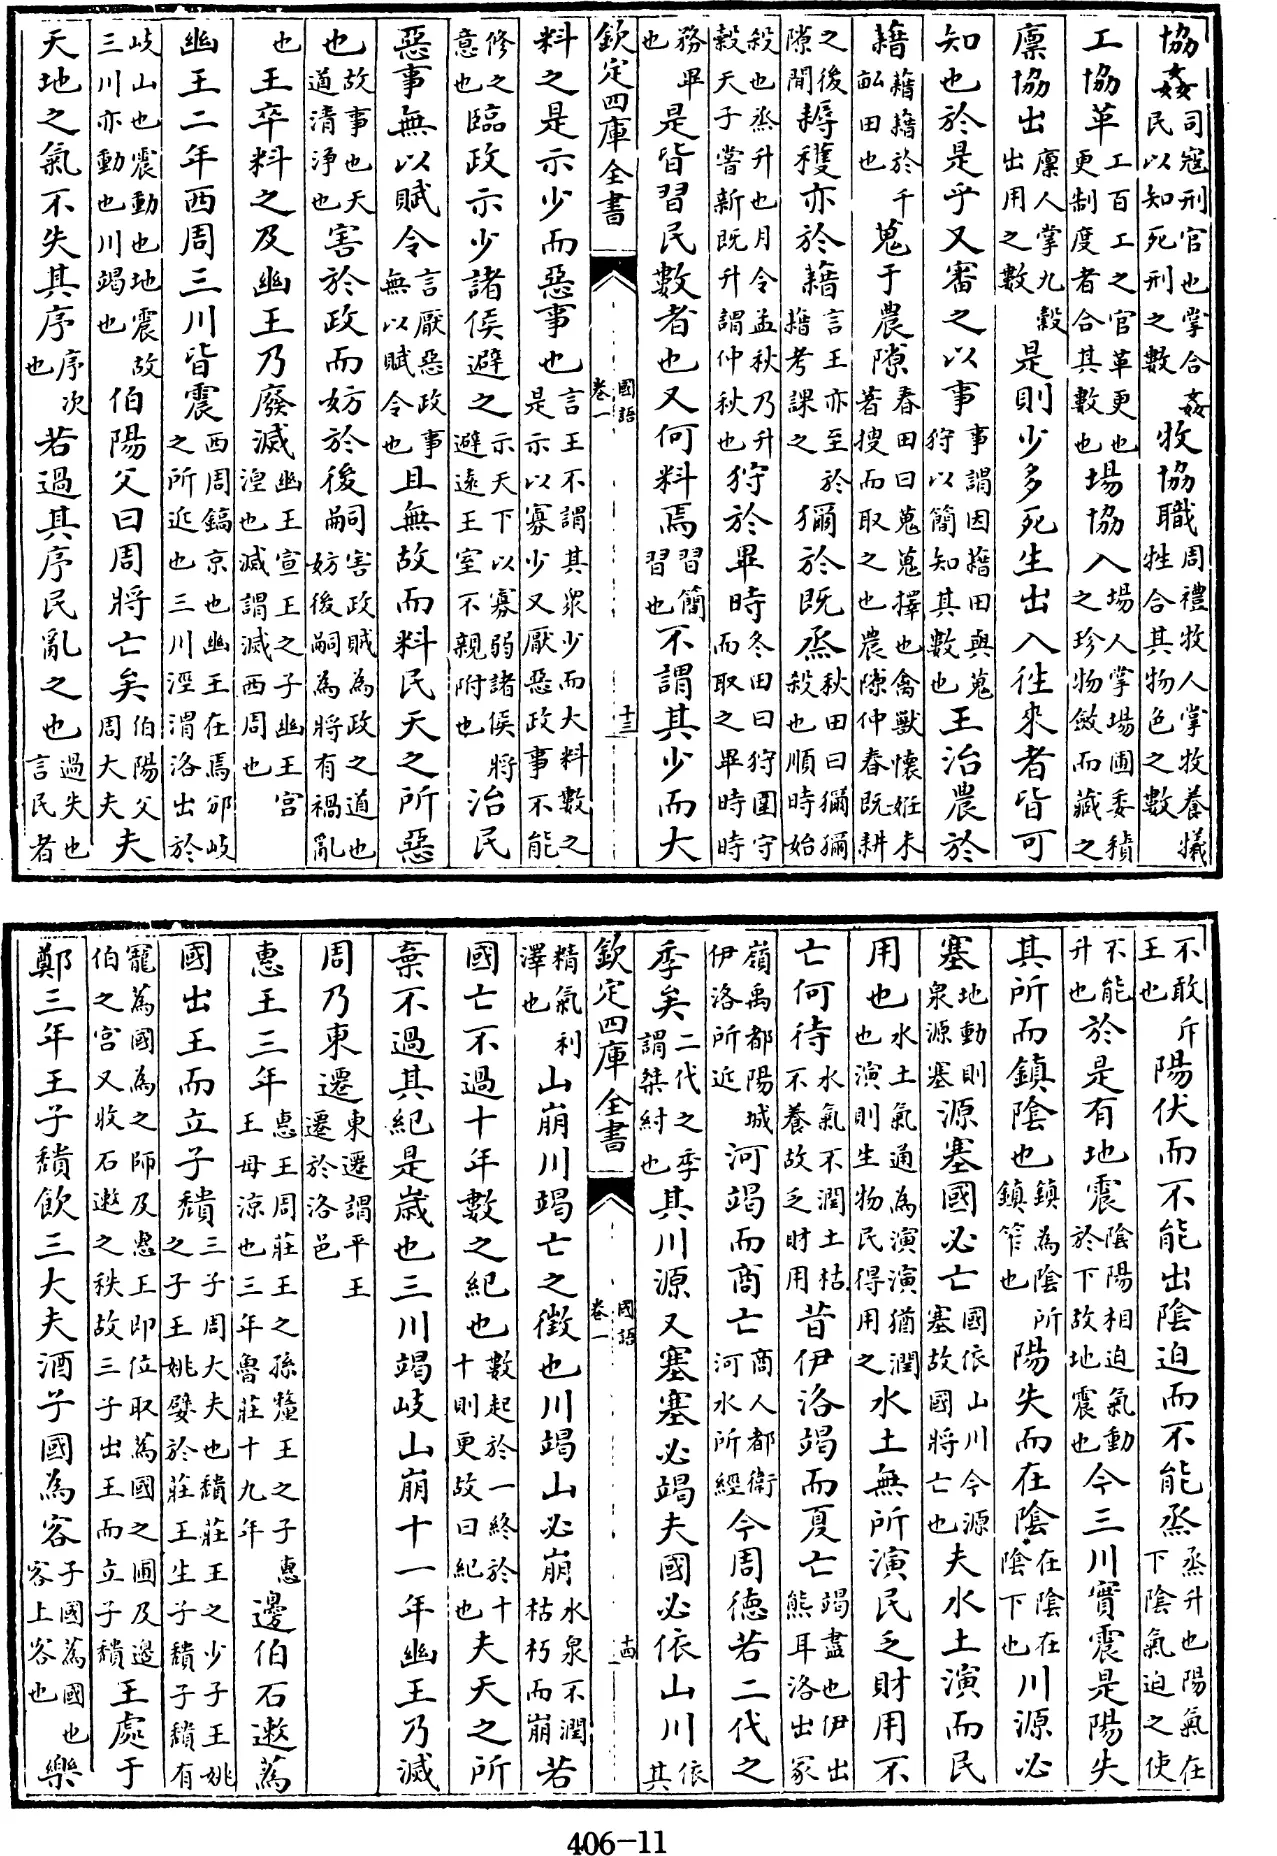 協姦司寇刑官也掌合姦民以知死刑之數牧協職周禮牧人掌牧養犧牲合其物色之數
工協革工百工之官革更也更制度者合其數也場協入場人掌場圃委積之珍物斂而藏之
廩協出廩人掌九穀出用之數是則少多死生出入往來者皆可
知也於是乎又審之以事事謂因藉田與蒐狩以簡知其數也王治農於
藉藉藉於千畝田也蒐于農隙春田曰蒐蒐擇也禽獸懷姙未著搜而取之也農隙仲春既耕
之後隙間耨穫亦於藉言王亦至於藉考課之獮於既烝秋田曰獮獮殺也順時始
殺也烝升也月令孟秋乃升穀天子嘗新既升謂仲秋也狩於畢時冬田曰狩圍守而取之畢時時
務畢也是皆習民數者也又何料焉習簡習也不謂其少而大
欽定四庫全書 國語卷一 十三
料之是示少而惡事也言王不謂其衆少而大料數之是示以寡少又厭惡政事不能
修之意也臨政示少諸侯避之示天下以寡弱諸侯將避遠王室不親附也治民
惡事無以賦令言厭惡政事無以賦令也且無故而料民天之所惡
也故事也天道清淨也害於政而妨於後嗣害政賊為政之道也妨後嗣為將有禍亂
也王卒料之及幽王乃廢滅幽王宣王之子幽王宫湼也滅謂滅西周也
幽王二年西周三川皆震西周鎬京也幽王在焉邠岐之所近也三川涇渭洛出於
岐山也震動也地震故三川亦動也川竭也伯陽父曰周將亡矣伯陽父周大夫夫
天地之氣不失其序序次也若過其序民亂之也過失也言民者
不敢斥王也陽伏而不能出陰迫而不能烝烝升也陽氣在下陰氣迫之使
不能升也於是有地震陰陽相迫氣動於下故地震也今三川實震是陽失
其所而鎮陰也鎮為陰所鎮笮也陽失而在陰在陰在陰下也川源必
塞地動則泉源塞源塞國必亡國依山川今源塞故國將亡也夫水土演而民
用也水土氣通為演演猶潤也演則生物民得用之水土無所演民乏財用不
亡何待水氣不潤土枯不養故乏財用昔伊洛竭而夏亡竭盡也伊出熊耳洛出冢
嶺禹都陽城伊洛所近河竭而商亡商人都衛河水所經今周德若二代之
季矣二代之季謂桀紂也其川源又塞塞必竭夫國必依山川依其
欽定四庫全書 國語卷一 十四
精氣利澤也山崩川竭亡之徵也川竭山必崩水泉不潤枯朽而崩若
國亡不過十年數之紀也數起於一終於十十則更故曰紀也夫天之所
棄不過其紀是歲也三川竭岐山崩十一年幽王乃滅
周乃東遷東遷謂平王遷於洛邑
惠王三年惠王周莊王之孫釐王之子惠王母涼也三年魯莊十九年邊伯石遬蔿
國出王而立子穨三子周大夫也穨莊王之少子王姚之子王姚嬖於莊王生子穨子穨有
寵蔿國為之師及惠王即位取蔿國之圃及邊伯之宫又收石遬之秩故三子出王而立子穨王處于
鄭三年王子穨飲三大夫酒子國為客子國蔿國也客上客也樂
406-11